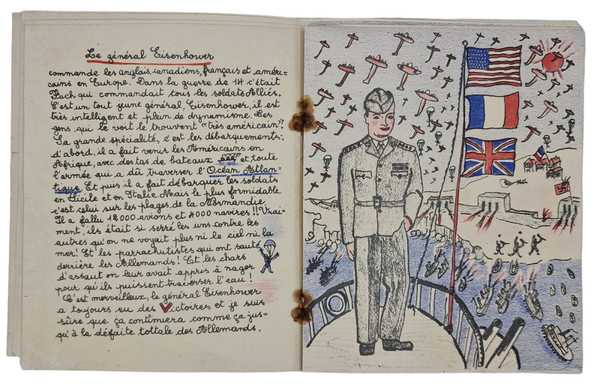 Le général Eisenhower
commande les anglais, canadiens, français et améri-
cains en Europe. Dans la guerre de 14 c'était
Foch, qui commandait tous les soldats Alliés.
C'est un tout jeune général, Eisenhower, il est
très intelligent et plein de dynamisme. Les
gens qui le voit le trouvent "très américain"!
Sa grande spécialité, c'est les débarquements:
d'abord, il a fait venir les Américains en
Afrique, avec des tas de bateaux et toute
l'armée qui a dû traverser l'Océan Atlan-
tique. Et puis il a fait débarquer les soldats
en Sicile et en Italie. Mais le plus formidable
c'est celui sur les plages de la Normandie.
Il a fallu 12000 avions et 4000 navires!! Vrai-
ment, ils était si serré les uns contre les
autres qu'on ne voyait plus ni le ciel ni la
mer! Et les parachutistes qui ont sauté
derrière les Allemands! Et les chars
d'assaut on leur avait appris à nager
pour qu'ils puissent traverser l'eau!
C'est merveilleux, le général Eisenhower
a toujours eu des Victoires et je suis
sûre que ça continuera comme ça jus-
qu'à la défaite totale des Allemands.